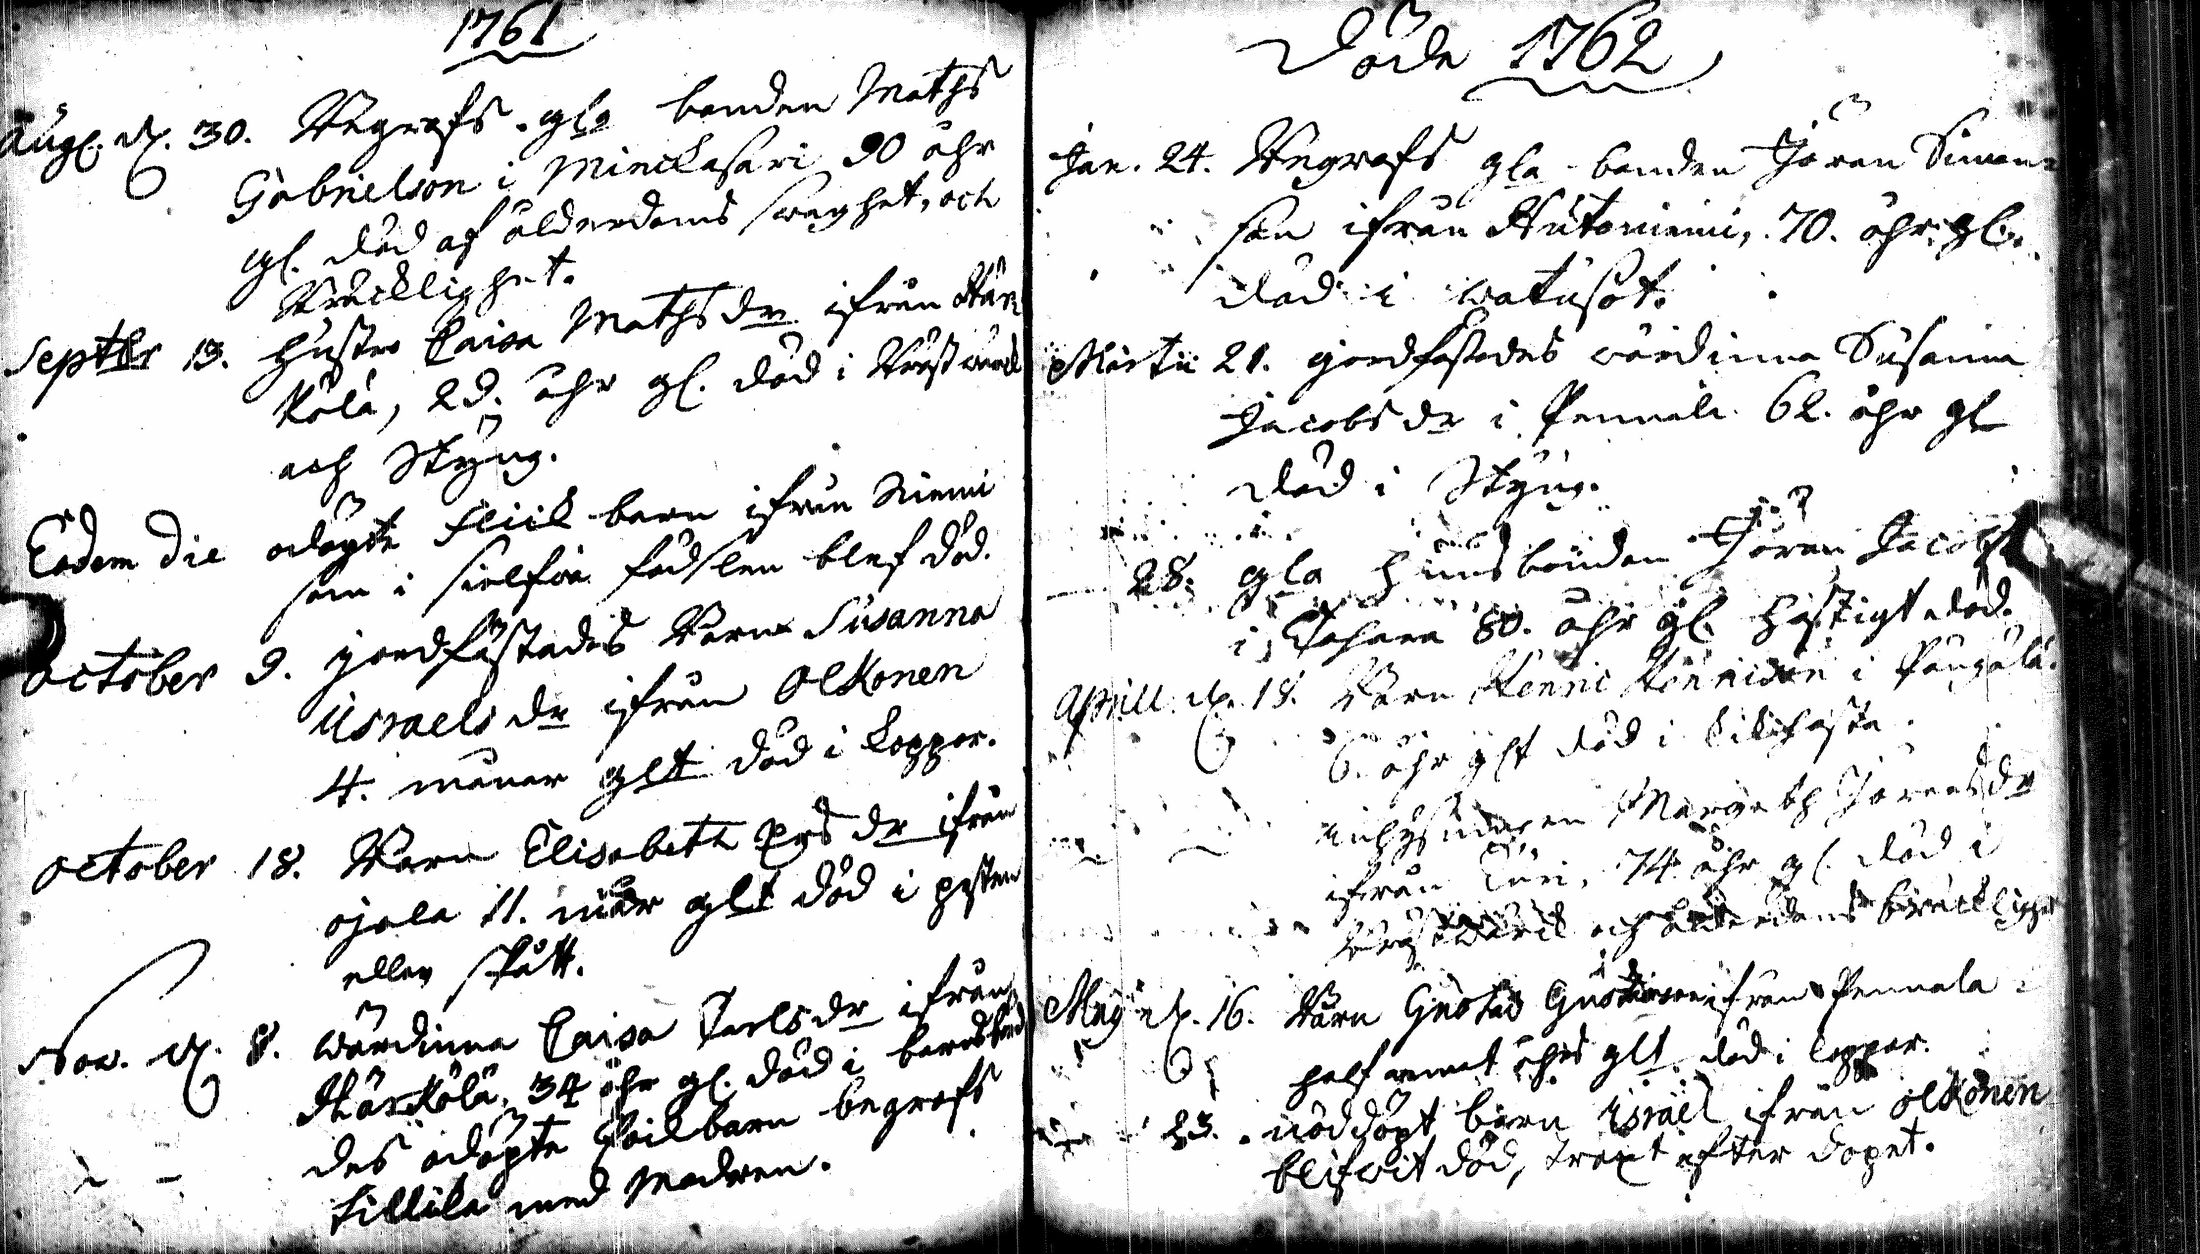 1761
Aug. d. 30. Begrofs gla bonden Maths
Gabrielson i Minckasari 90 åhr
gl. död af ålderdoms swaghet, och
Bräcklighet.
Septbr 13. Hustro Caisa Mathsdr ifrån Här
kälä, 29. åhr gl. död i Bröstwärck
och Styng.
Eodem die odöpte Flick barn ifrån Niemi
som i sielfwa födslen blef död.
October 9. jordfästades Barn Susanna
Israelsdr ifrån Olkonen
4. månar glt död i koppor.
October 18. Barn Elisabeth dr ifrån
ojala 11. månar glt död i
eller
Nov. d. 8. wärdinna Caisa Carlsdr ifrån
Härkälä, 34 åhr gl. död i barnsbörd
des odöpte Poikbarn begrofs
tillika med Modren.
Döde 1762
Jan. 24. Begrofs gla bonden Jöran Simon-
son ifrån Hutoniemi, 70. åhr gl.
död i watusot.
Martii 21. jordfästades wärdinna Susanna
Jacobsdr i Pennala 62. åhr gl
död i Styng.
28. gla husbonden Jöran Jacobs
i Tahara 80. åhr gl. hastigt död.
Aprill d. 18. Barn Henric i
6. åhr glt död i
inhyses Margeth Jöransdr
ifrån 74 åhr gl. död i
Bröstwärck och ålderdoms bräcklighet
Maij d. 16. Barn Gustav Gustavson ifrån Pennala
half annat åhrs glt död i koppor.
23. nöddöpt barn Israel ifrån olkonen
blifwit död, straxt efter dopet.